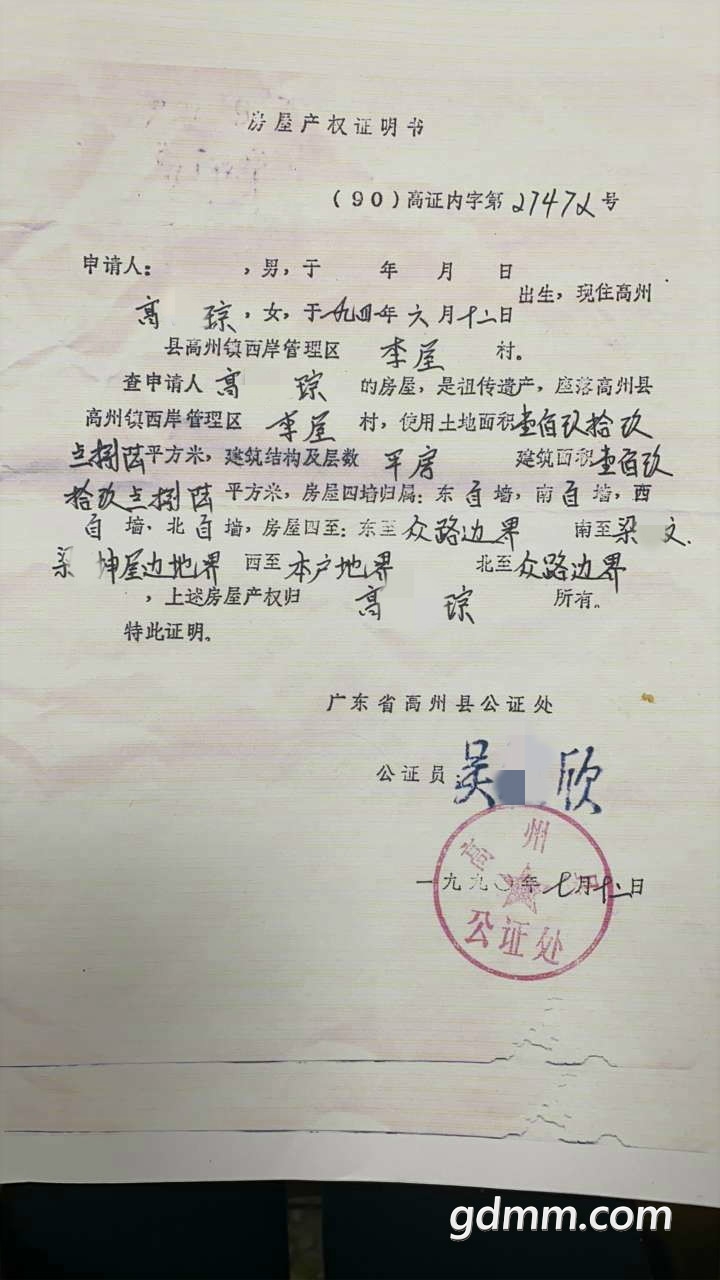 房屋产权证明书
（90）高证内字第27472号
申请人： ，男，于 年 月 日
出生，现住高州
高 琮，女，于一九四一年六月十二日
县高州镇西岸管理区 李屋 村。
查申请人高 琮 的房屋，是祖传遗产，座落高州县
高州镇西岸管理区 李屋 村，使用土地面积壹佰玖拾玖
点捌陆平方米，建筑结构及层数 平房 建筑面积壹佰玖
拾玖点捌陆 平方米，房屋四墙归属：东自墙，南自墙，西
自墙，北自墙，房屋四至：东至众路边界 南至梁 文、
梁 坤屋边地界 西至本户地界 北至众路边界
，上述房屋产权归 高 琮 所有。
特此证明。
广东省高州县公证处
公证员：吴 欣
一九九〇年七月十二日
高州
公证处
gdmm.com